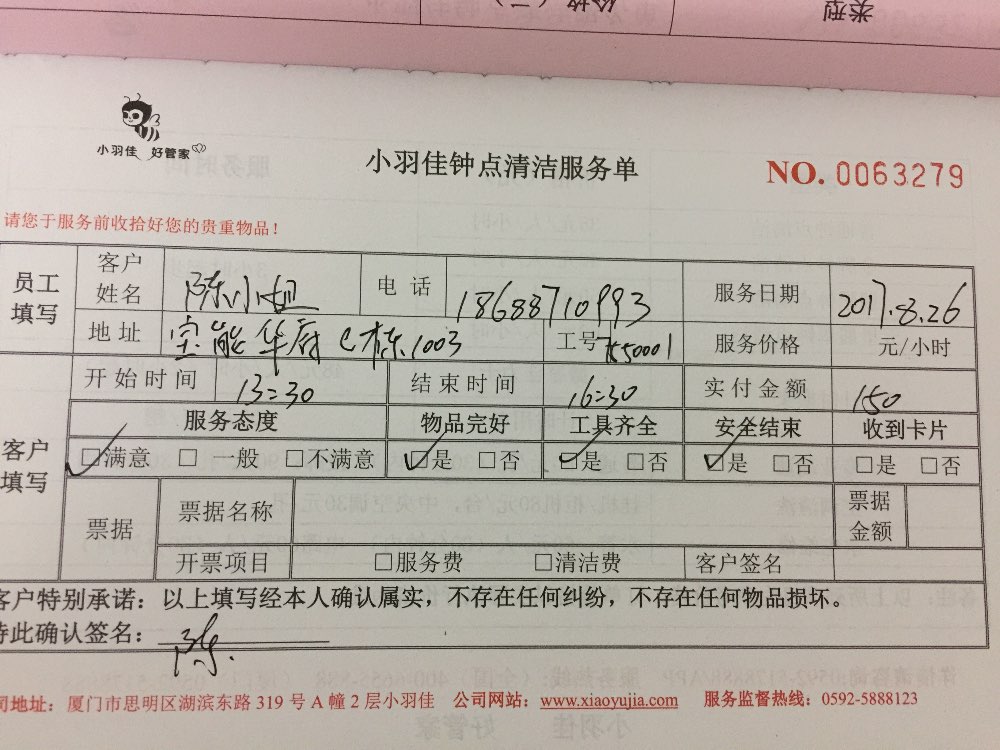 类型
小羽佳 好管家
小羽佳钟点清洁服务单
NO. 0063279
请您于服务前收拾好您的贵重物品！
员工填写 客户姓名 陈 电话 18688710993 服务日期 2017.8.26
地址 宝能华府 栋1003 工号 服务价格 元/小时
开始时间 13:30 结束时间 16:30 实付金额 150
客户填写 服务态度 物品完好 工具齐全 安全结束 收到卡片
☑满意 □一般 □不满意 ☑是 □否 ☑是 □否 ☑是 □否 □是 □否
票据 票据名称 票据金额
开票项目 □服务费 □清洁费 客户签名
客户特别承诺：以上填写经本人确认属实，不存在任何纠纷，不存在任何物品损坏。
特此确认签名：陈
司地址：厦门市思明区湖滨东路 319 号 A 幢 2 层小羽佳 公司网站：www.xiaoyujia.com 服务监督热线：0592-5888123